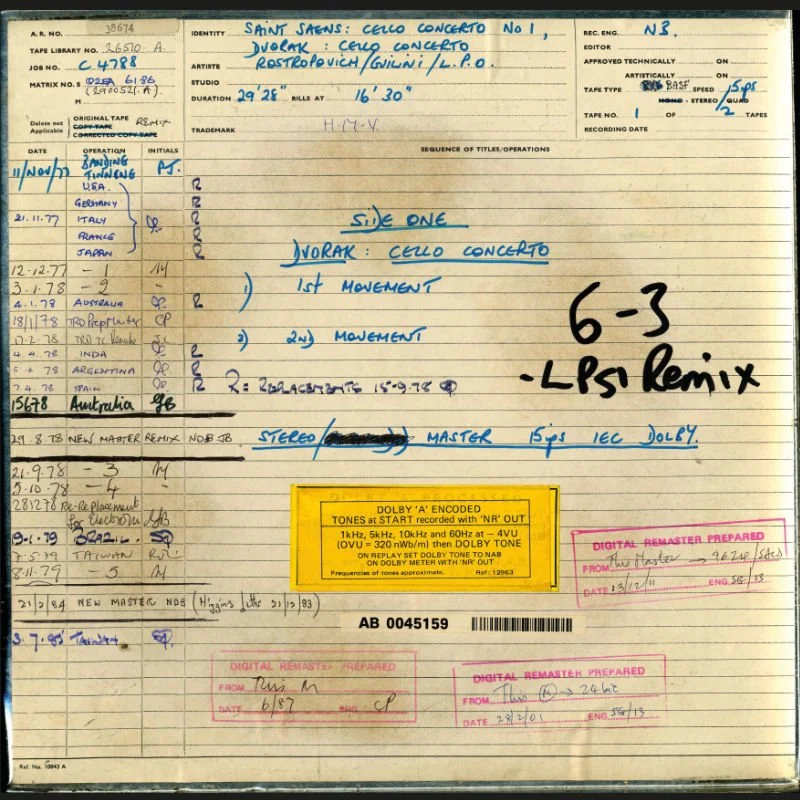 A.R. NO. 38674
TAPE LIBRARY NO. 26510 A.
JOB NO. C 4788
MATRIX NO. S 02EA 6186
(2900521.A)
M
Delete not Applicable
ORIGINAL TAPE REMIX
COPY TAPE
CORRECTED COPY TAPE
IDENTITY SAINT SAENS: CELLO CONCERTO No 1,
DVORAK: CELLO CONCERTO
ARTISTE ROSTROPOVICH/GUILINI/L.P.O.
STUDIO
DURATION 29'28" BILLS AT 16'30"
TRADEMARK H-M-V
REC. ENG. N3.
EDITOR
APPROVED TECHNICALLY ON
ARTISTICALLY ON
TAPE TYPE BASF SPEED 15ips
MONO - STEREO / QUAD
TAPE NO. 1 OF 2 TAPES
RECORDING DATE
DATE OPERATION INITIALS
SEQUENCE OF TITLES/OPERATIONS
11/NOV/77 BANDING
U.S.A. R
GERMANY R
21.11.77 ITALY R
FRANCE R
JAPAN R
SIDE ONE
DVORAK: CELLO CONCERTO
1) 1st MOVEMENT
2) 2nd MOVEMENT
12-12-77 - 1
3.1.78 - 2 "
4.1.78 AUSTRALIA R
18/1/78 CP
4.4.78 INDIA R
ARGENTINA R
7.4.78 SPAIN R R = REPLACEMENTS 15-9-78
15678 Australia
6-3
- LPS1 Remix
29.8.78 NEW MASTER REMIX
STEREO/ MASTER 15ips IEC DOLBY.
21.9.78 - 3
5.10.78 - 4 "
281278 Re-Replacement
for Electrola
19.1.79 BRAZIL
7-5-79 TAIWAN
8.11.79 - 5
21/2/84 NEW MASTER NDB (Higgins 21/12/83)
3.7.85 TAIWAN
DOLBY 'A' ENCODED
TONES at START recorded with 'NR' OUT
1kHz, 5kHz, 10kHz and 60Hz at – 4VU
(OVU = 320 nWb/m) then DOLBY TONE
ON REPLAY SET DOLBY TONE TO NAB
ON DOLBY METER WITH 'NR' OUT
Frequencies of tones approximate. Ref: 12963
DIGITAL REMASTER PREPARED
FROM This Master → 9624/SACD
DATE 13/12/11 ENG SG/13
AB 0045159
DIGITAL REMASTER PREPARED
FROM This M
DATE 6/87 ENG CP
DIGITAL REMASTER PREPARED
FROM This M → 24 bit
DATE 28/2/01 ENG SG/13
Ref. No. 10843 A